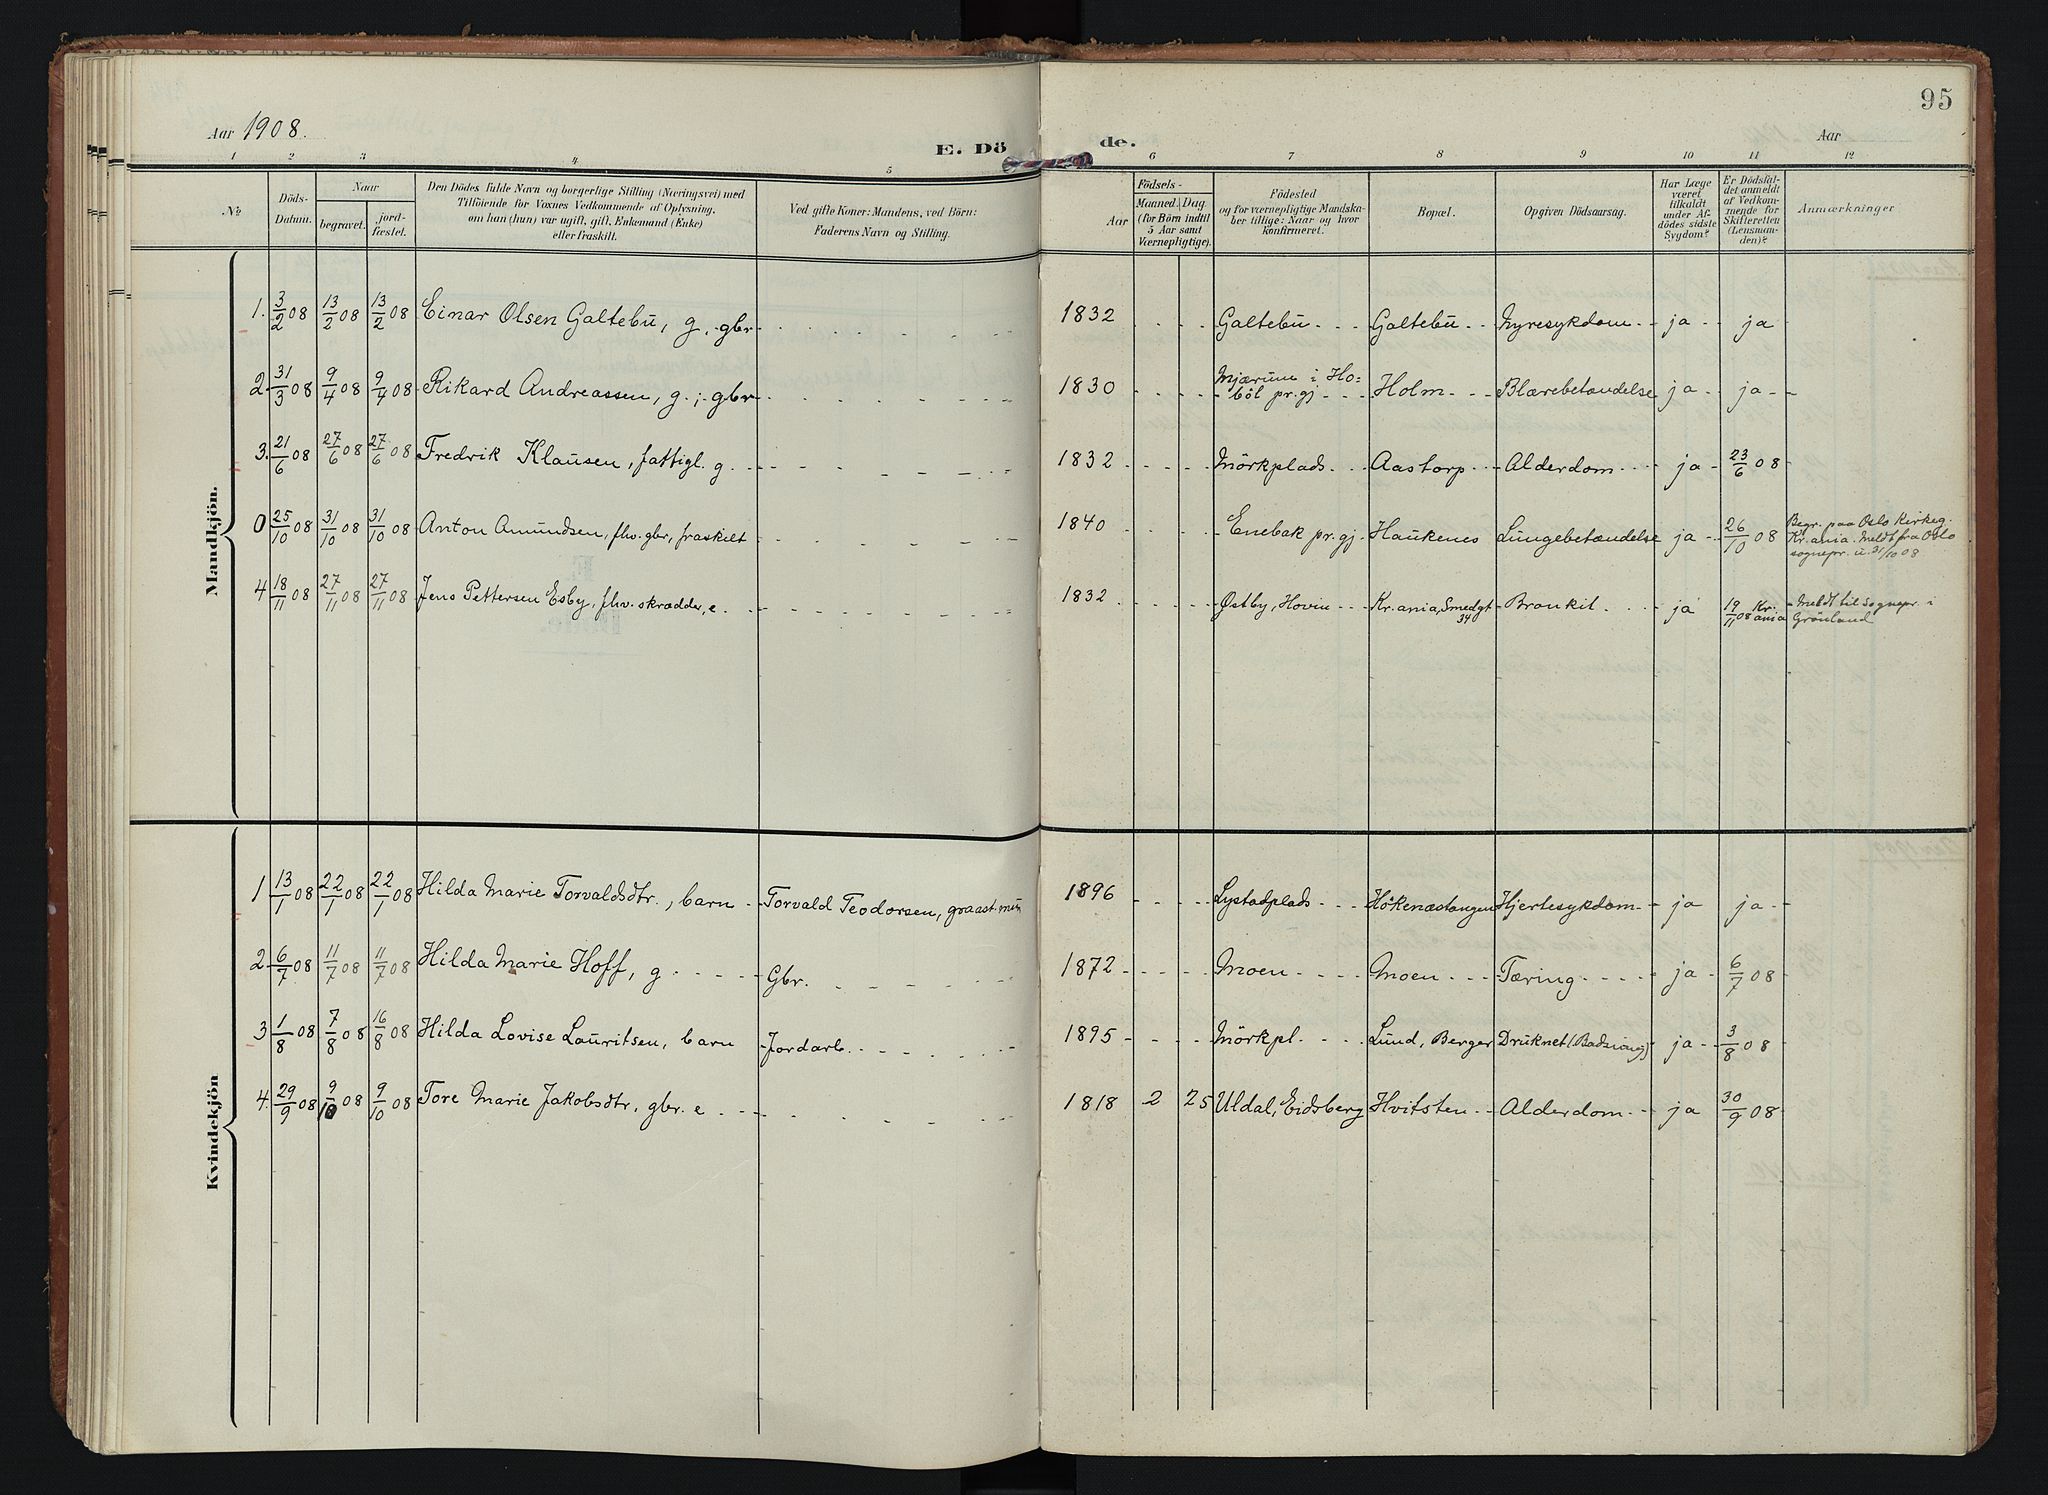 95
Aar 1908.
Aar
E. Dö
de.
1 2 3 4 5 6 7 8 9 10 11 12
No
Döds-
Datum.
Naar
begravet.
jord-
fæstet.
Den Dödes fulde Navn og borgerlige Stilling (Næringsvei) med
Tilföiende for Voxnes Vedkommende af Oplysning,
om han (hun) var ugift, gift, Enkemand (Enke)
eller fraskilt.
Ved gifte Koner: Mandens, ved Börn:
Faderens Navn og Stilling.
Födsels-
Aar
Maaned. Dag.
(for Börn indtil
5 Aar samt
Værnepligtige).
Födested
og for værnepligtige Mandska-
ber tillige: Naar og hvor
konfirmeret.
Bopæl.
Opgiven Dödsaarsag.
Har Læge
været
tilkaldt
under Af-
dödes sidste
Sygdom?
Er Dödsfal-
det anmeldt
af Vedkom-
mende for
Skifteretten
(Lensman-
den)?
Anmærkninger
Mandkjön.
1. 3/2 08 13/2 08 13/2 08 Einar Olsen Galtebu, g., gbr 1832 Galtebu Galtebu Nyresykdom ja ja
2. 31/3 08 9/4 08 9/4 08 Rikard Andreassen, g., gbr 1830 Mjærum i Ho=
böl pr.gj Holm Blærebetændelse ja ja
3. 21/6 08 27/6 08 27/6 08 Fredrik Klausen, fattigl. g 1832 Mörkplads Aastorp Alderdom ja 23/6 08
0 25/10 08 31/10 08 31/10 08 Anton Amundsen, fhv. gbr, fraskilt 1840 Enebak pr.gj Haukenes Lungebetændelse ja 26/10 08 Begr. paa Oslo Kirkeg.
Kr.ania. Meldt fra Oslo
sognepr. u. 31/10 08
4 18/11 08 27/11 08 27/11 08 Jens Pettersen Esby, fhv. skrædder, e 1832 Østby, Hovin Kr.ania, Smedgt
34 Bronkit ja 19/11 08 Kr.
ania Meldt til sognepr. i
Grönland
Kvindekjön
1 13/1 08 22/1 08 22/1 08 Hilda Marie Torvaldsdtr., barn Torvald Teodorsen, graast.min 1896 Lystadplads Hökenæstangen Hjertesykdom ja ja
2 6/7 08 11/7 08 11/7 08 Hilda Marie Hoff, g Gbr. 1872 Moen Moen Tæring ja 6/7 08
3 1/8 08 7/8 08 16/8 08 Hilda Lovise Lauritsen, barn Jordarb. 1895 Mörkpl. Lund, Berger Druknet (Badning) ja 3/8 08
4. 29/9 08 9/10 08 9/10 08 Tore Marie Jakobsdtr, gbr. e 1818 2 25 Uldal, Eidsberg Hvitsten Alderdom ja 30/9 08